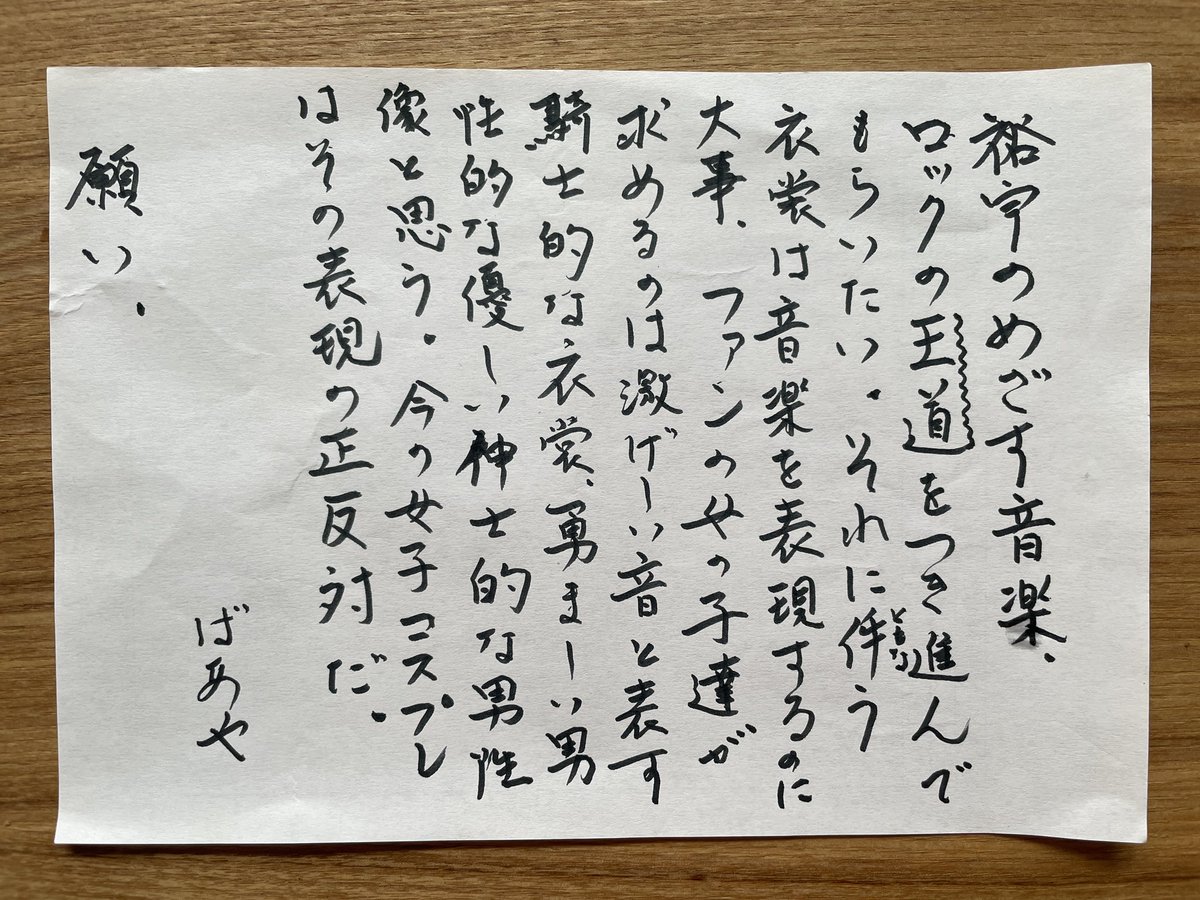 裕宇のめざす音楽、
ロックの王道をつき進んで
もらいたい。それに伴う
ともな
衣裳は音楽を表現するのに
大事、ファンの女の子達が
求めるのは激げしい音と表す
騎士的な衣裳、勇ましい男
性的な優しい紳士的な男性
像と思う。今の女子コスプレ
はその表現の正反対だ。
ばあや
願い。